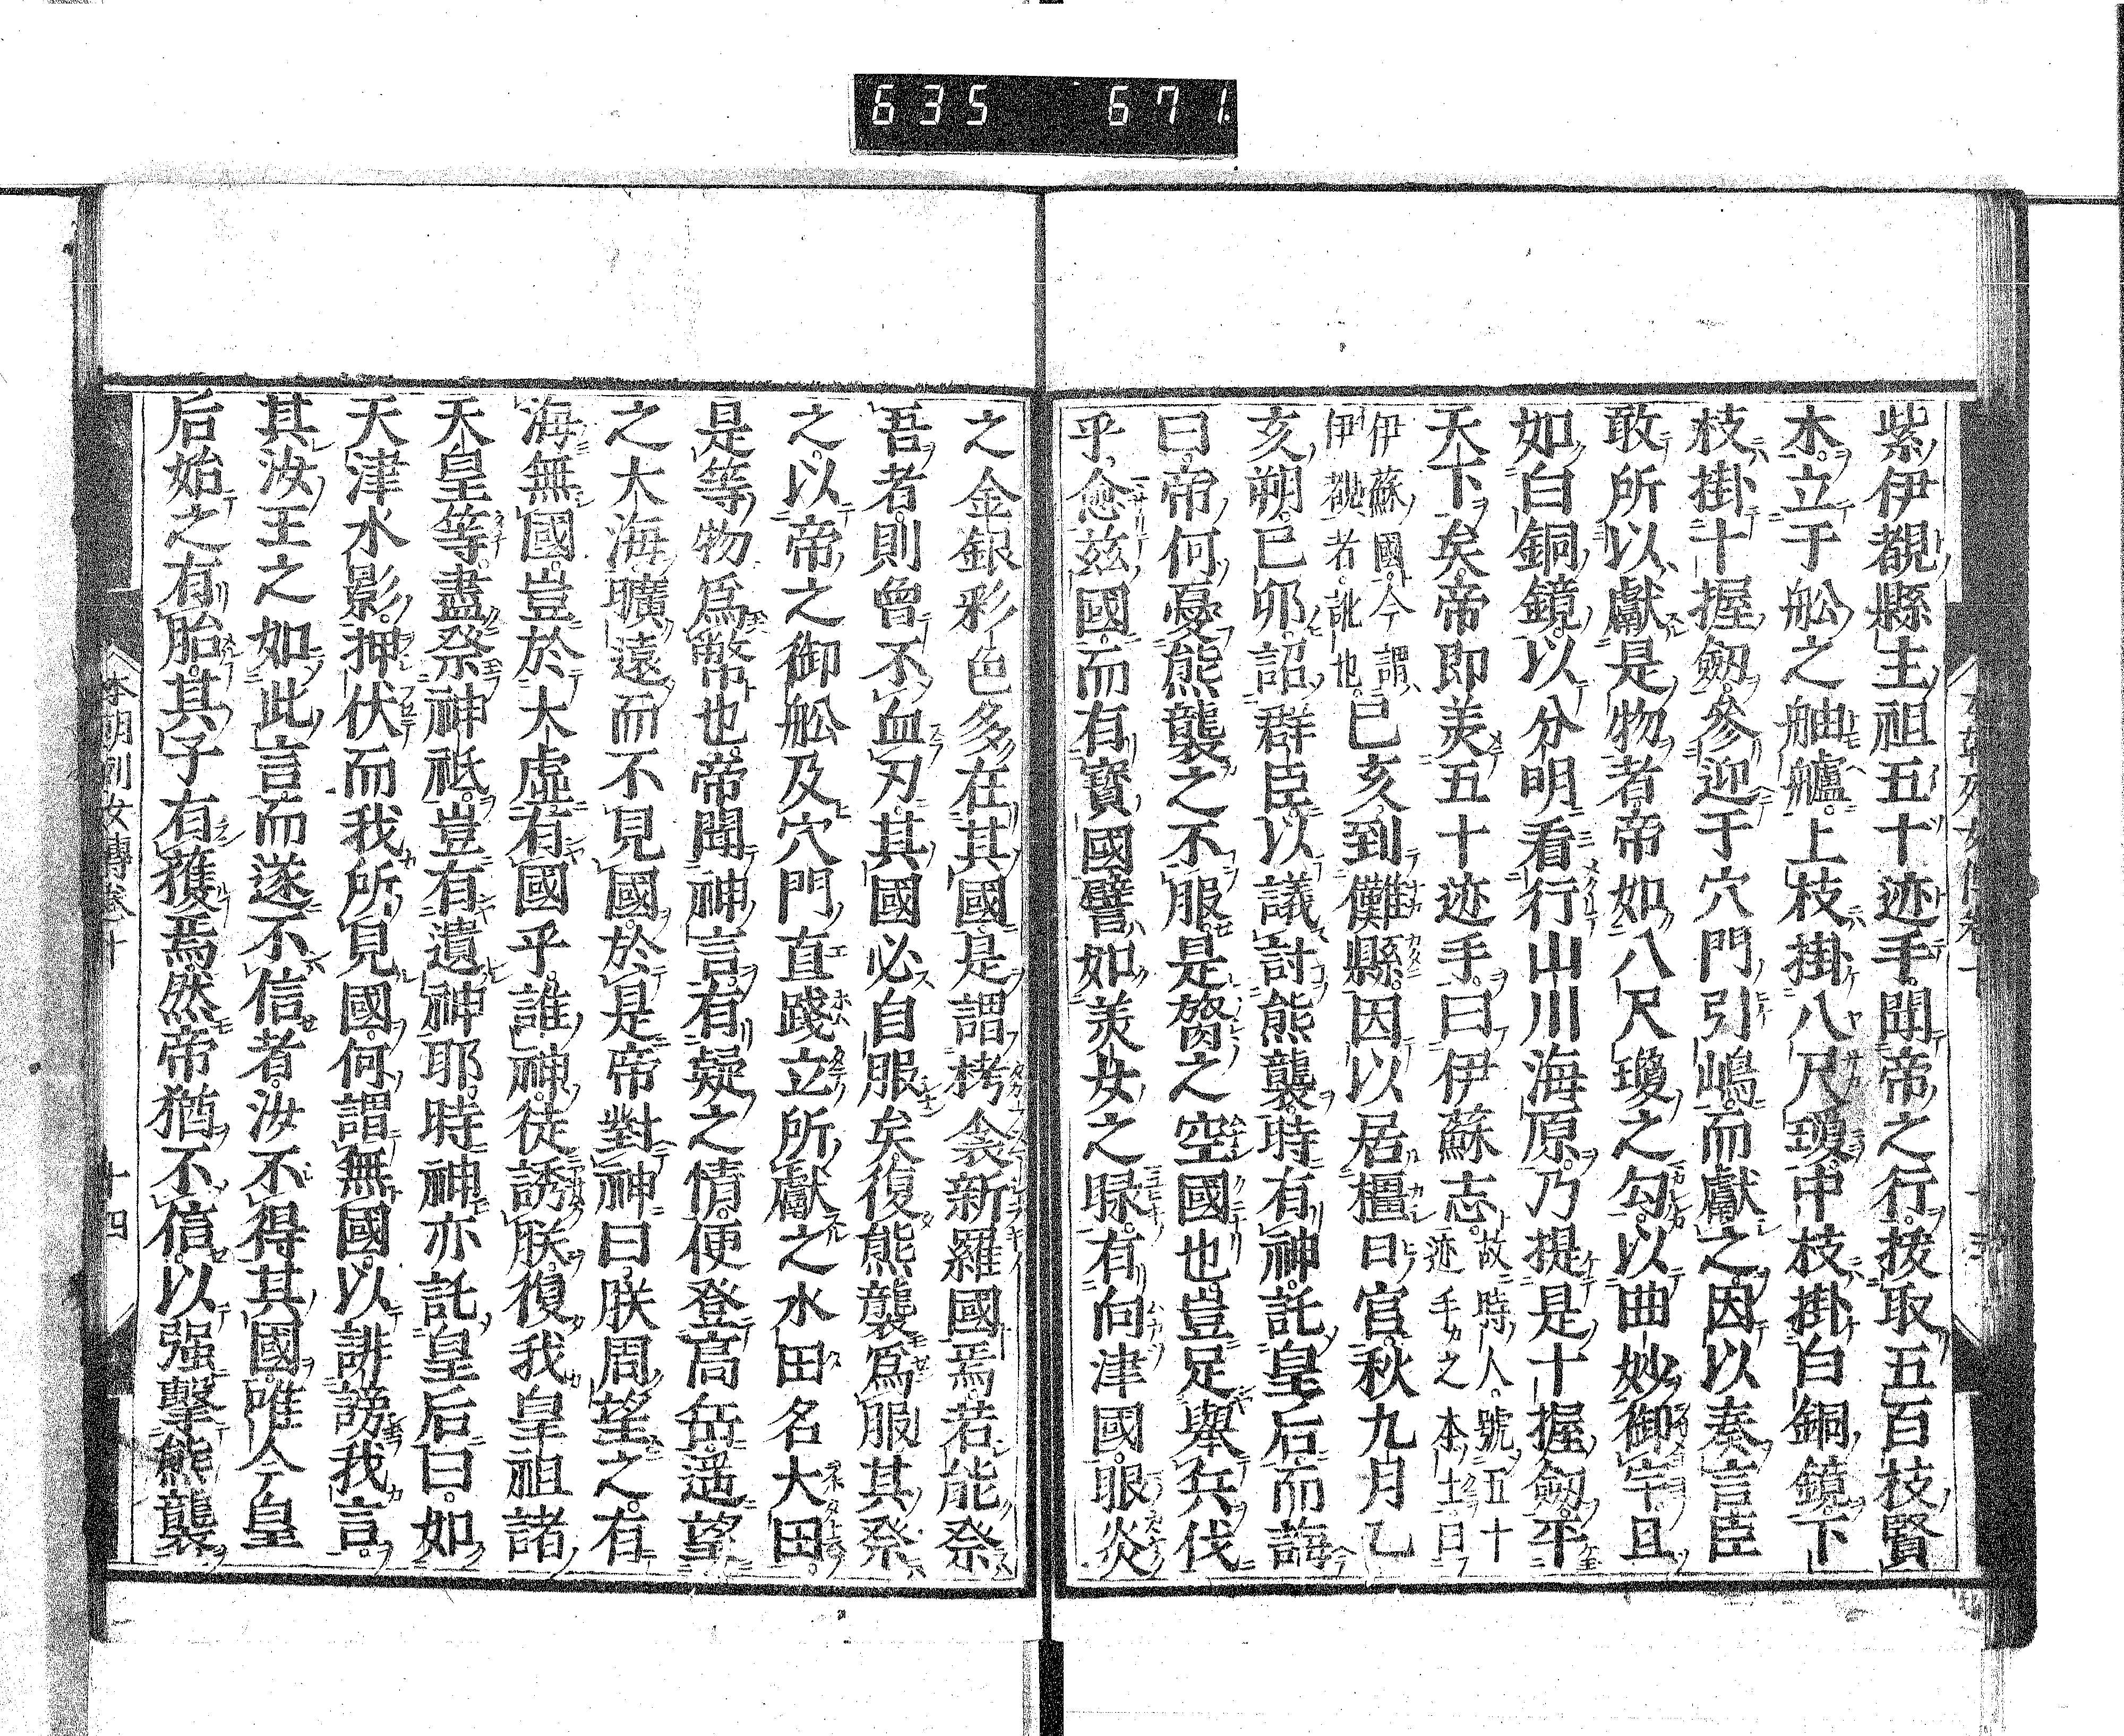 635 671
紫伊覩縣主祖五十迹手。聞帝之行。拔取五百枝賢
木。立于舩之舳艫。上枝掛八尺瓊。中枝掛白銅鏡。下
枝掛十握劔。參迎于穴門引嶋。而獻之。因以奏言。臣
敢所以獻是物者。帝如八尺瓊之勾。以曲妙御宇。且
如白銅鏡。以分明看行山川海原。乃提是十握劔。平
天下矣。帝即美五十迹手。曰伊蘇志。故時人。號五十迹手之本土。曰
伊蘇國。今謂伊覩者。訛也。已亥到儺縣。因以居橿日宮。秋九月乙
亥朔。已卯。詔群臣。以議討熊襲。時有神。託皇后而誨
曰。帝何憂熊襲之不服。是膂之空國也。豈足舉兵伐
乎。愈茲國。而有寶國。譬如美女之睩。有向津國。眼炎
之金銀彩色多在其國。是謂栲衾新羅國焉。若能祭
吾者。則曾不血刃。其國必自服矣。復熊襲爲服。其祭
之。以帝之御舩及穴門直踐立所獻之水田名大田。
是等物爲幣也。帝聞神言。有疑之情。便登高岳。遥望
之大海。曠遠而不見國。於是帝對神曰。朕周望之。有
海無國。豈於大虛有國乎。誰神。徒誘朕。復我皇祖諸
天皇等。盡祭神祇。豈有遺神耶。時神亦託皇后曰。如
天津水影。押伏而我所見國。何謂無國。以誹謗我言。
其汝王之如此言。而遂不信者。汝不得其國。唯今皇
后始之有胎。其子有獲焉。然帝猶不信。以强擊熊襲
本朝列女傳卷十
十四